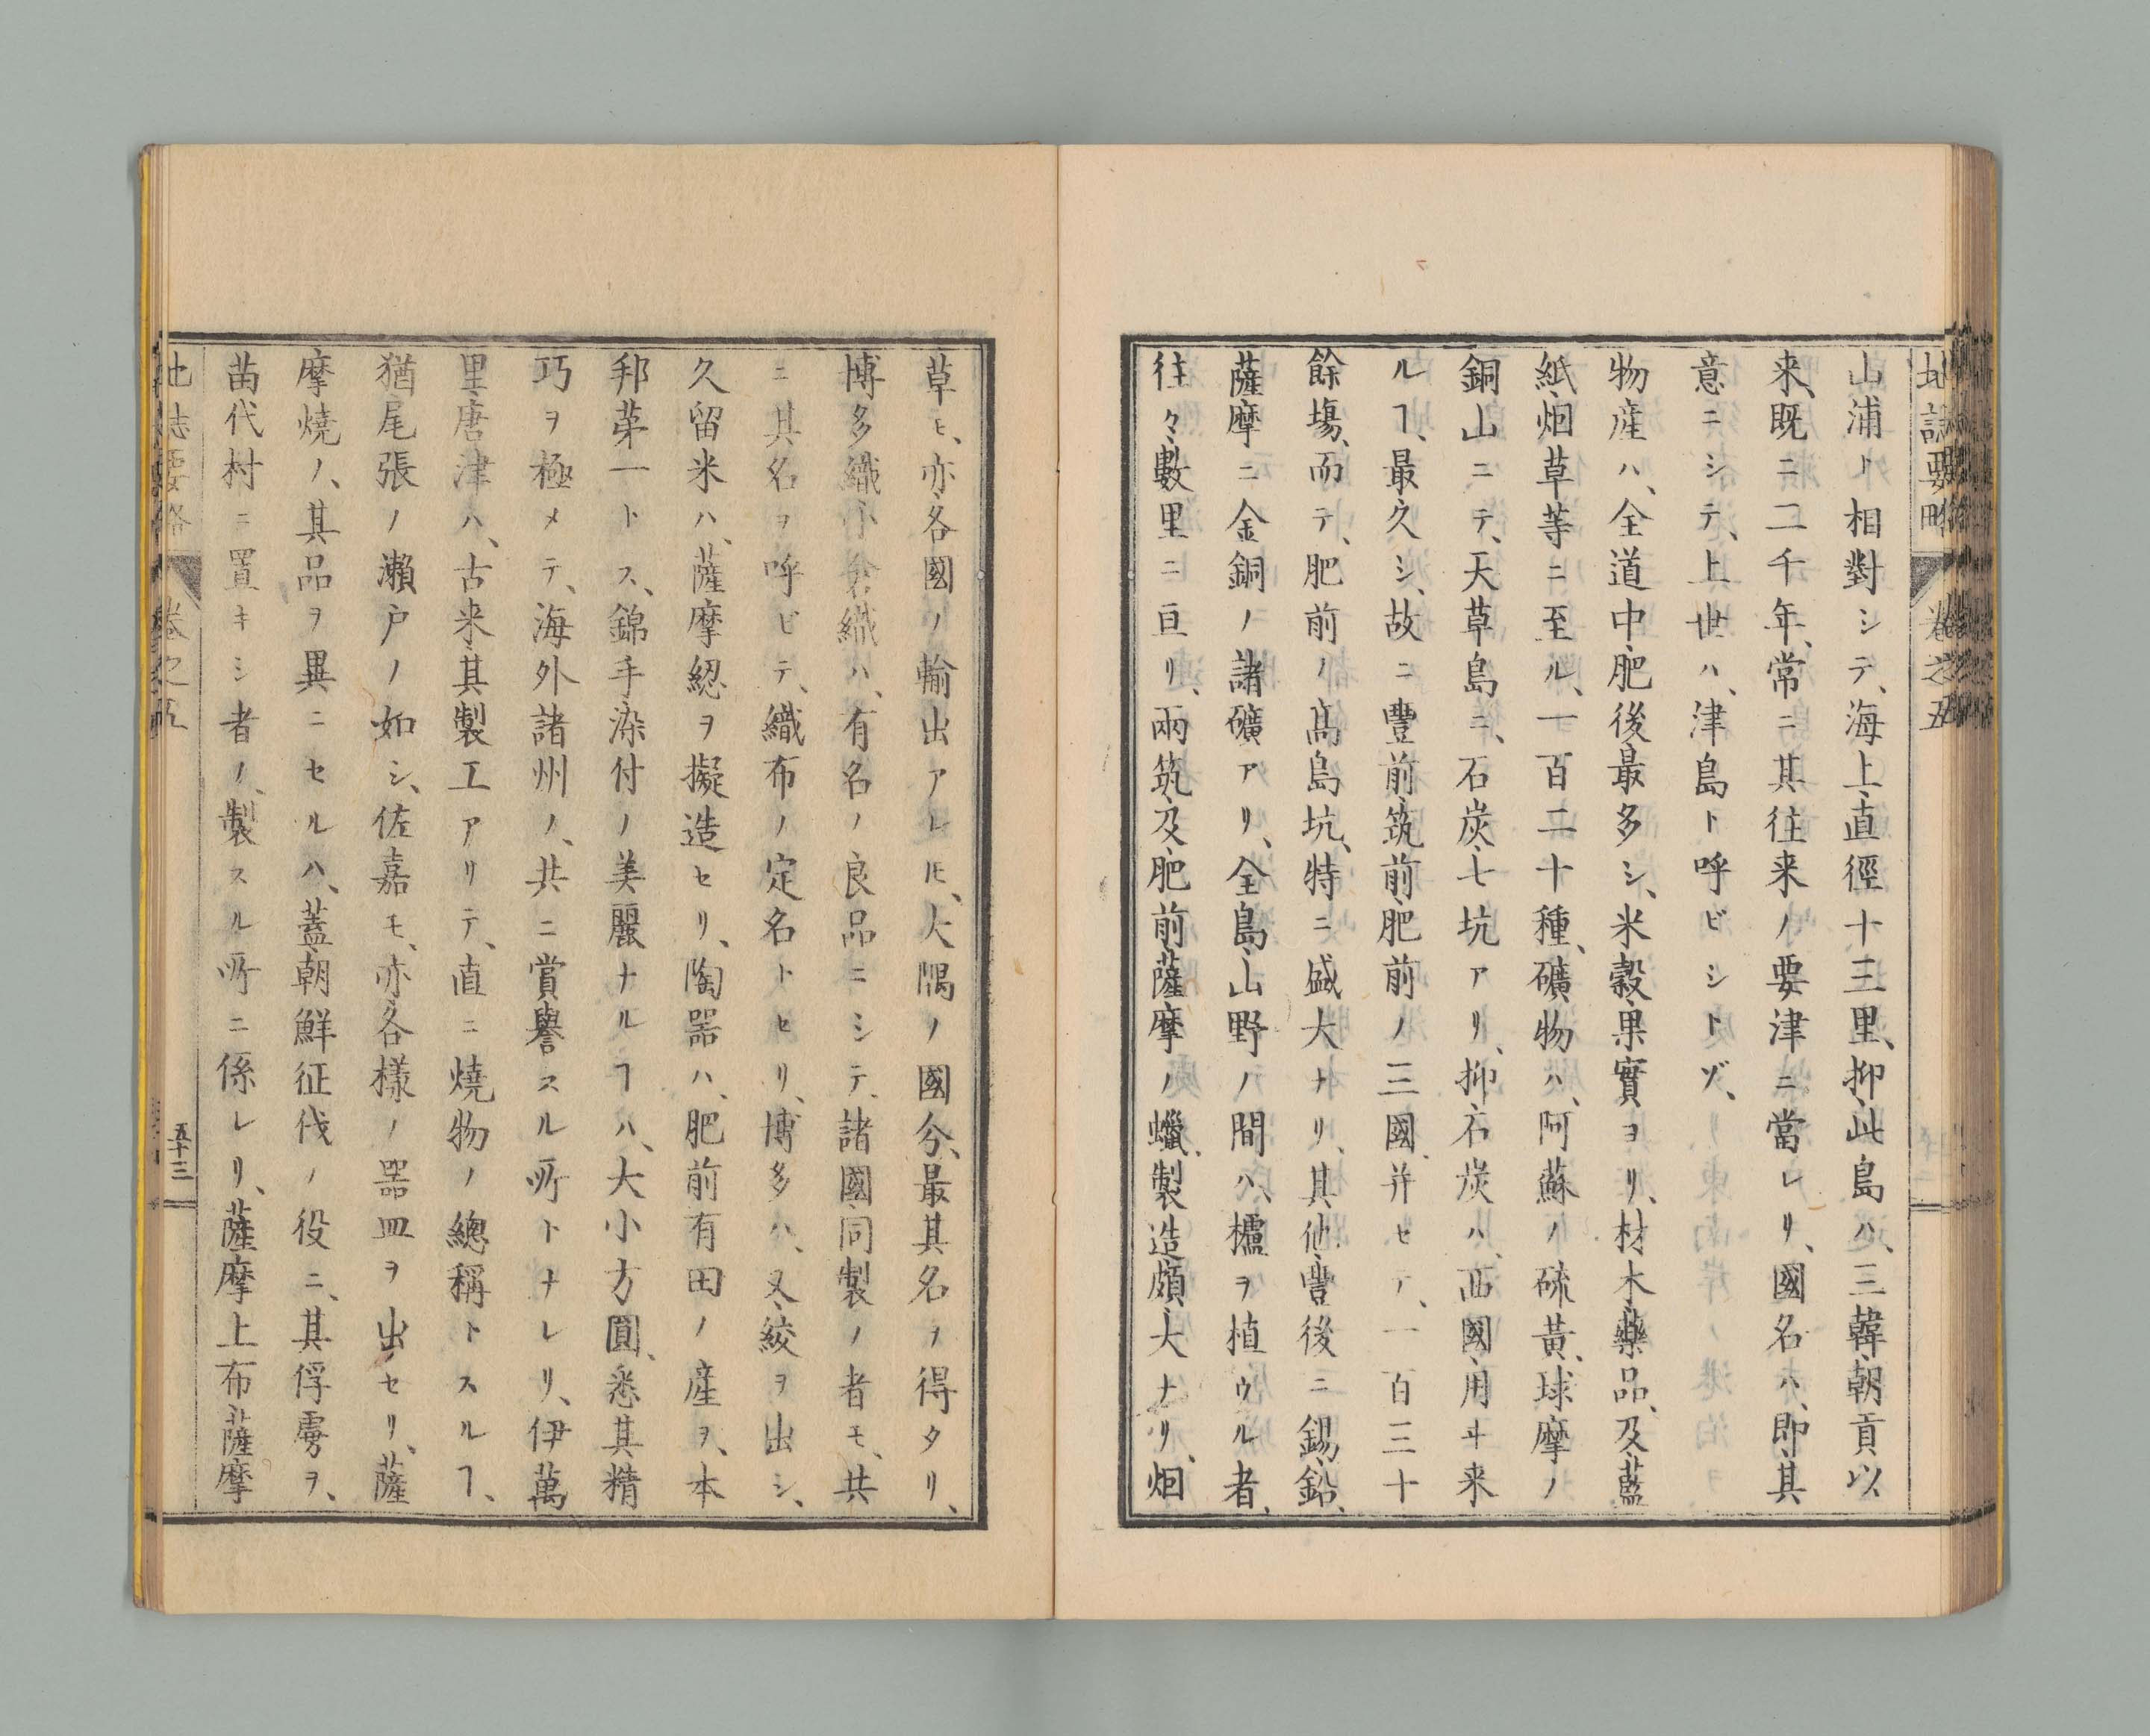 地誌要略 卷之五
山浦ト相對シテ、海上直徑十三里、抑此島ハ、三韓朝貢以
来、既ニ二千年、常ニ其往来ノ要津ニ當レリ、國名ハ、即其
意ニシテ、上世ハ、津島ト呼ビシトゾ、
物産ハ、全道中、肥後最多シ、米穀果實ヨリ、材木藥品、及藍
紙烟草等ニ至ル、一百二十種、礦物ハ、阿蘇ノ硫黃、球摩ノ
銅山ニテ、天草島ニ、石炭七坑アリ、抑石炭ハ、西國用ヰ来
ルヿ、最久シ、故ニ豐前筑前肥前ノ三國并セテ、一百三十
餘塲、而テ、肥前ノ髙島坑、特ニ盛大ナリ、其他豐後ニ錫鉛、
薩摩ニ金銅ノ諸礦アリ、全島山野ノ間ハ、櫨ヲ植ウル者、
往々數里ニ亘リ、兩筑及肥前薩摩ノ蠟、製造頗大ナリ、烟
草モ、亦各國ノ輸出アレ𪜈、大隅ノ國分、最其名ヲ得タリ、
博多織小倉織ハ、有名ノ良品ニシテ、諸國同製ノ者モ、共
ニ其名ヲ呼ビテ、織布ノ定名トセリ、博多ハ、又絞ヲ出シ、
久留米ハ、薩摩綛ヲ擬造セリ、陶噐ハ、肥前有田ノ產ヲ、本
邦苐一トス、錦手染付ノ美麗ナルヿハ、大小方圓、悉其精
巧ヲ極メテ、海外諸州ノ、共ニ賞譽スル所トナレリ、伊萬
里唐津ハ、古来其製工アリテ、直ニ燒物ノ總稱トスルヿ、
猶尾張ノ瀨戸ノ如シ、佐嘉モ、亦各樣ノ噐皿ヲ出セリ、薩
摩燒ノ、其品ヲ異ニセルハ、蓋朝鮮征伐ノ役ニ、其俘虜ヲ、
苗代村ニ置キシ者ノ、製スル所ニ係レリ、薩摩上布、薩摩
地誌要略 卷之五 五十三